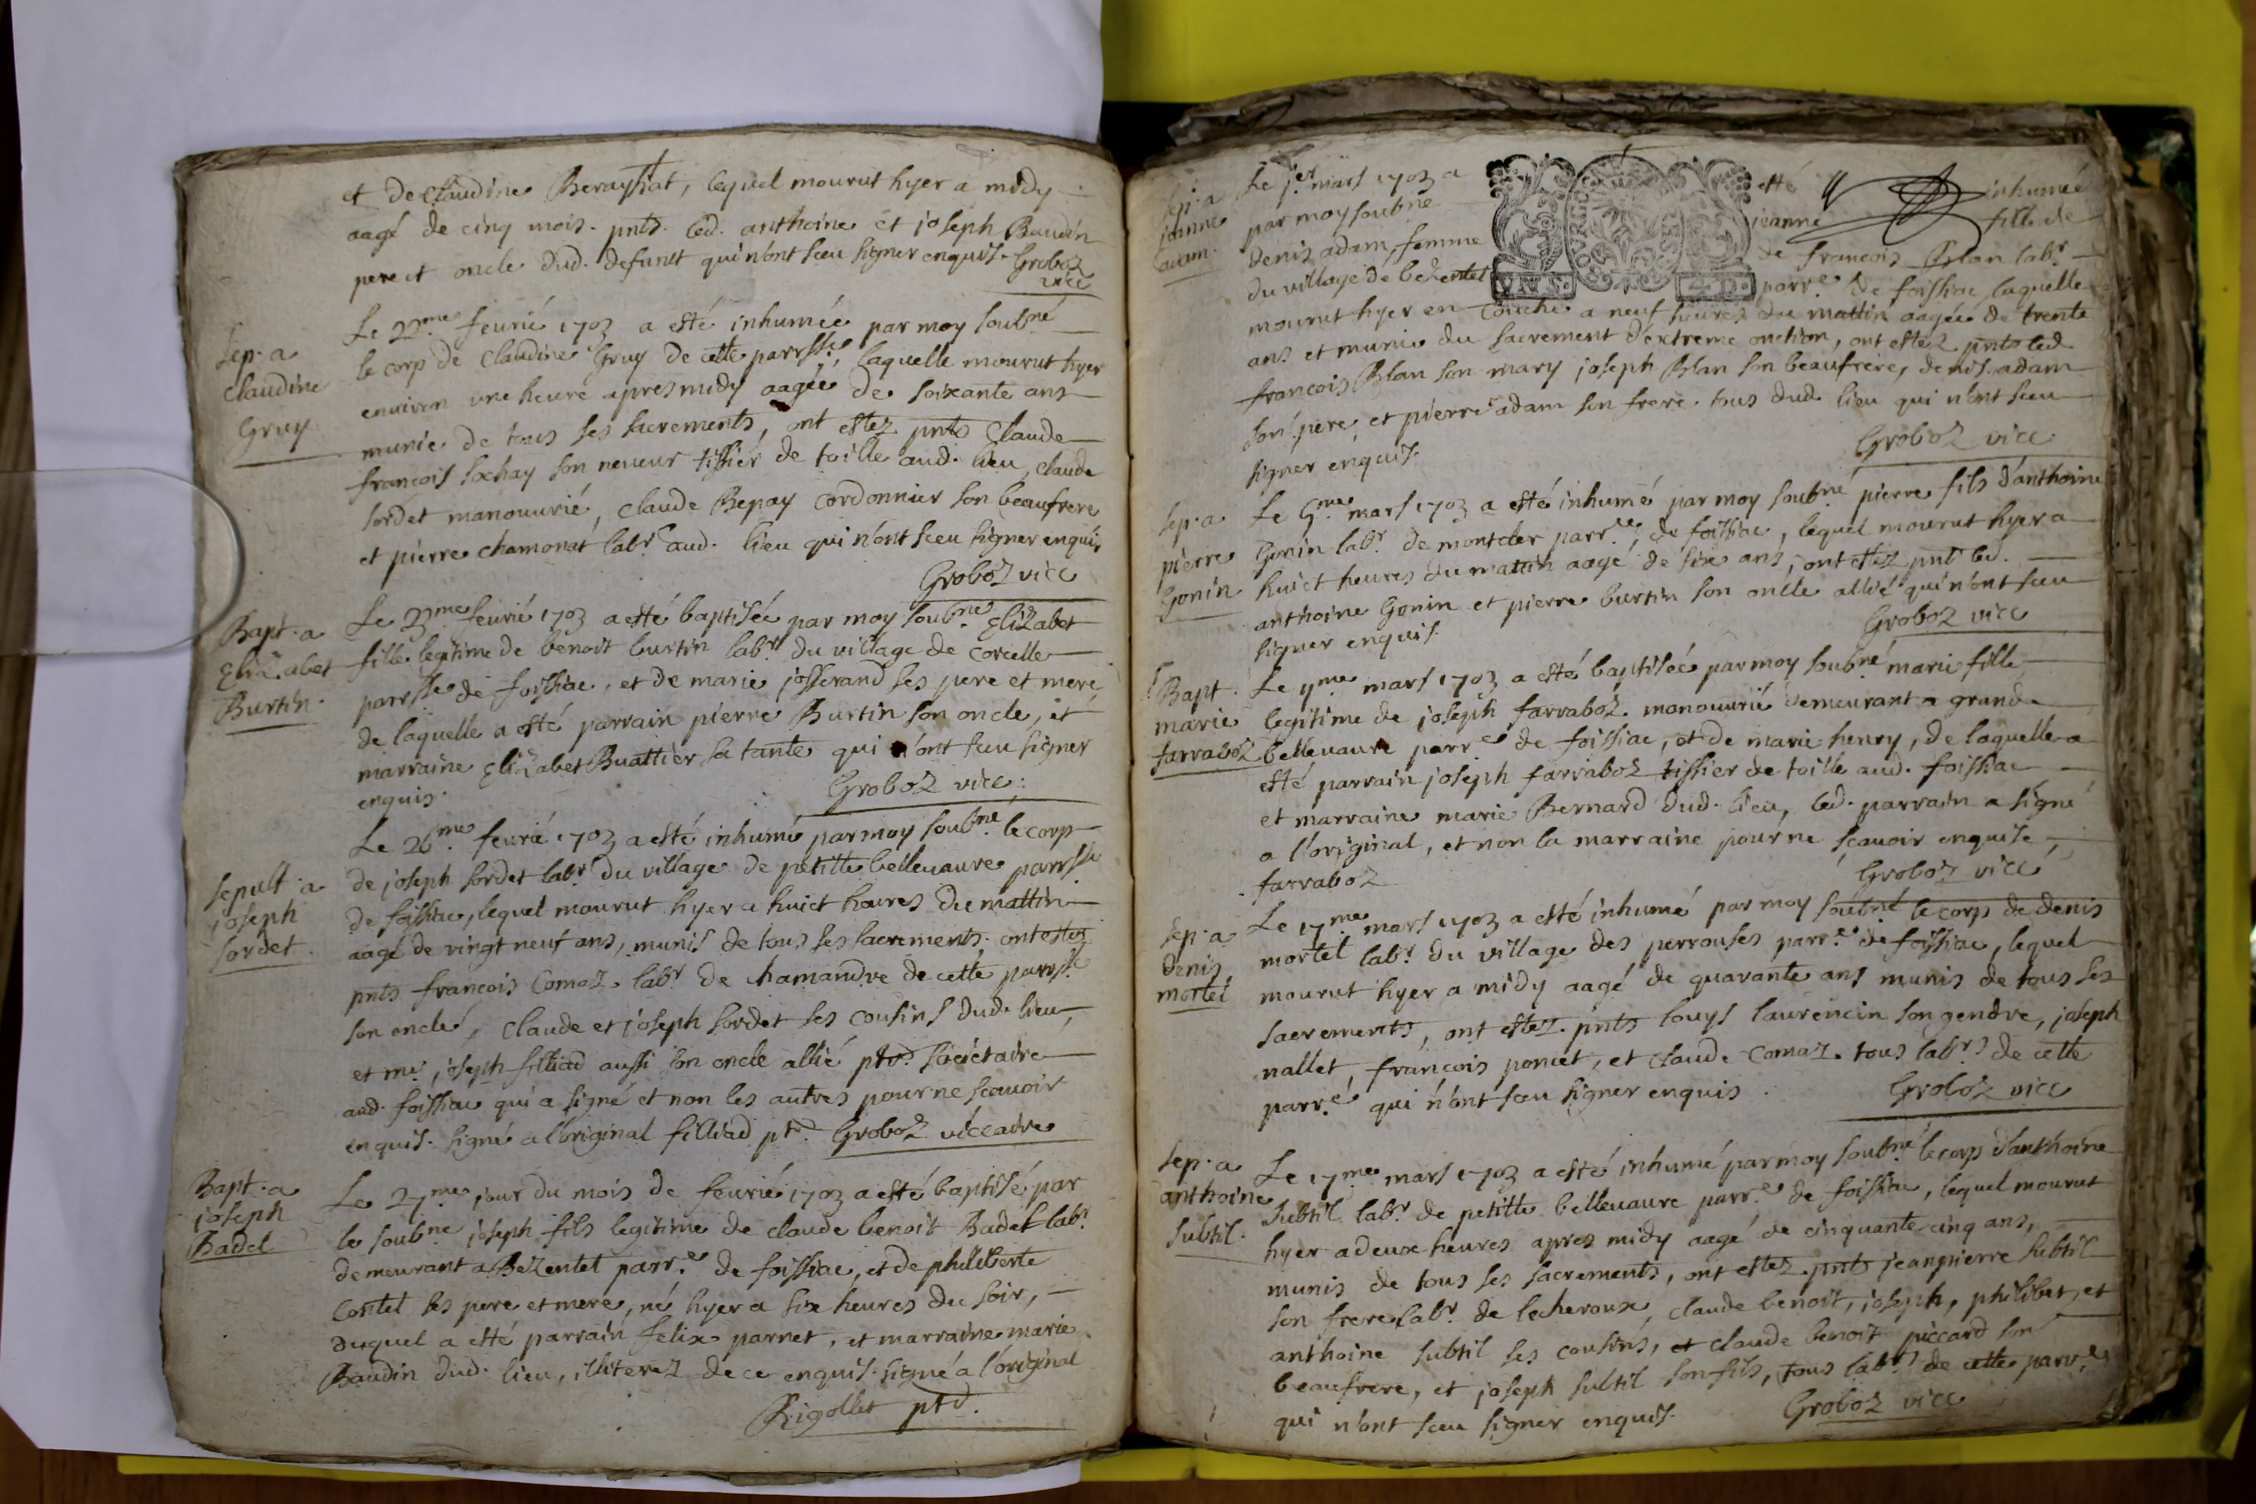 et de Claudine Berayssat, lequel mourut hyer a midy
aagé de cinq mois. pnts. led. anthoine et joseph Baudin
pere et oncle dud. defunct qui n'ont sceu signer enquis. Groboz
vicc
Sep. a
Claudine
Gruy
Le 22.me feurié 1703 a esté inhumée par moy soub.né
le corp de Claudine Gruy de cette parrsse, laquelle mourut hyer
enuiron vne heure apres midy aagée de soixante ans
munie de tous ses sacrements, ont estez pnts Claude
françois sochay son neueur tissier de toille aud. lieu, claude
sordet manouurié, claude Bepay cordonnier son beaufrere
et pierre chamonat lab.r aud. lieu qui n'ont sceu signer enquis
Groboz vicc
Bapt. a
Elizabet
Burtin.
Le 23.me feurié 1703 a esté baptisée par moy soub.né Elizabet
fille legitime de benoit burtin lab.r du village de corcelle
parrsse de foissiac, et de marie josserand ses pere et mere,
de laquelle a esté parrain pierre Burtin son oncle, et
marraine Elizabet Buattier sa tante qui n'ont sceu signer
enquis.
Groboz vicc.
Sepult. a
joseph
sordet.
Le 26.me feurié 1703 a esté inhumé par moy soub.né le corp
de joseph sordet lab.r du village de petitte belleuaure parrsse
de foissiac, lequel mourut hyer a huict heures du mattin
aagé de vingt neuf ans, munis de tous ses sacrements. ont estez
pnts françois Comaz lab.r de chamandre de cette parrsse
son oncle, claude et joseph sordet ses cousins dud. lieu,
et m.e joseph filliad aussi son oncle allié ptr. sociétaire
aud. foissiac qui a signé et non les autres pour ne scauoir
enquis. signé a l'original filliad ptr. Groboz viccaire
Bapt. a
joseph
Badel
Le 27.me jour du mois de feurié 1703 a esté baptisé par
le soub.né joseph fils legitime de claude benoit Badel lab.r
demeurant a Bezentet parr.e de foissiac, et de philiberte
Contet ses pere et mere, né hyer a six heures du soir,
duquel a esté parrain felix parnet, et marraine marie
Baudin dud. lieu, illiterez de ce enquis. signé a l'original
Rigollet ptr.
Sep. a
jeanne
adam.
Le j.er mars 1703 a esté inhumée
par moy soubné jeanne fille de
denis adam, femme de françois Blan lab.r
du village de bezentet parr.e de foissiac, laquelle
mourut hyer en couche a neuf heures du mattin aagée de trente
ans et munie du sacrement d'extreme onction, ont estez pnts led.
françois Blan son mary joseph Blan son beaufrere, denis adam
son pere, et pierre adam son frere tous dud. lieu qui n'ont sceu
signer enquis.
Groboz vicc
7.SNA
4.D.
Sep. a
pierre
Gonin
Le 9.me mars 1703 a esté inhumé par moy soub.né pierre fils d'anthoine
Gonin lab.r de montcler parr.e de foissiac, lequel mourut hyer a
huict heures du mattin aagé de six ans, ont estez pnts led.
anthoine Gonin et pierre burtin son oncle allié qui n'ont sceu
signer enquis.
Groboz vicc
Bapt.
marie
farraboz
Le 11.me mars 1703 a esté baptisée par moy soub.né marie fille
legitime de joseph farraboz. manouurié demeurant a grande
belleuaure parr.e de foissiac, et de marie henry, de laquelle a
esté parrain joseph farraboz tissier de toille aud. foissiac
et marraine marie Bernard dud. lieu, led. parrain a signé
a l'original, et non la marraine pour ne scauoir enquise,
farraboz
Groboz vicc
Sep. a
denis
mortel
Le 17.me mars 1703 a esté inhumé par moy soubné le corp de denis
mortel lab.r du village des perrouses parr.e de foissiac, lequel
mourut hyer a midy aagé de quarante ans munis de tous ses
sacrements, ont estez. pnts louys laurencin son gendre, joseph
nallet, françois poncet, et claude Comaz. tous lab.rs de cette
parr.e qui n'ont sceu signer enquis.
Groboz vicc
Sep. a
anthoine
subtil.
Le 17.me mars 1703 a esté inhumé par moy soub.né le corp d'anthoine
subtil lab.r de petitte belleuaure parr.e de foissiac, lequel mourut
hyer a deux heures apres midy aagé de cinquante cinq ans,
munis de tous ses sacrements, ont estez. pnts jeanpierre subtil
son frere lab.r de lecheroux, claude benoit, joseph, philibet, et
anthoine subtil ses cousins, et claude benoit piccard son
beaufrere, et joseph subtil son fils, tous lab.rs de cette parr.e
qui n'ont sceu signer enquis.
Groboz vicc